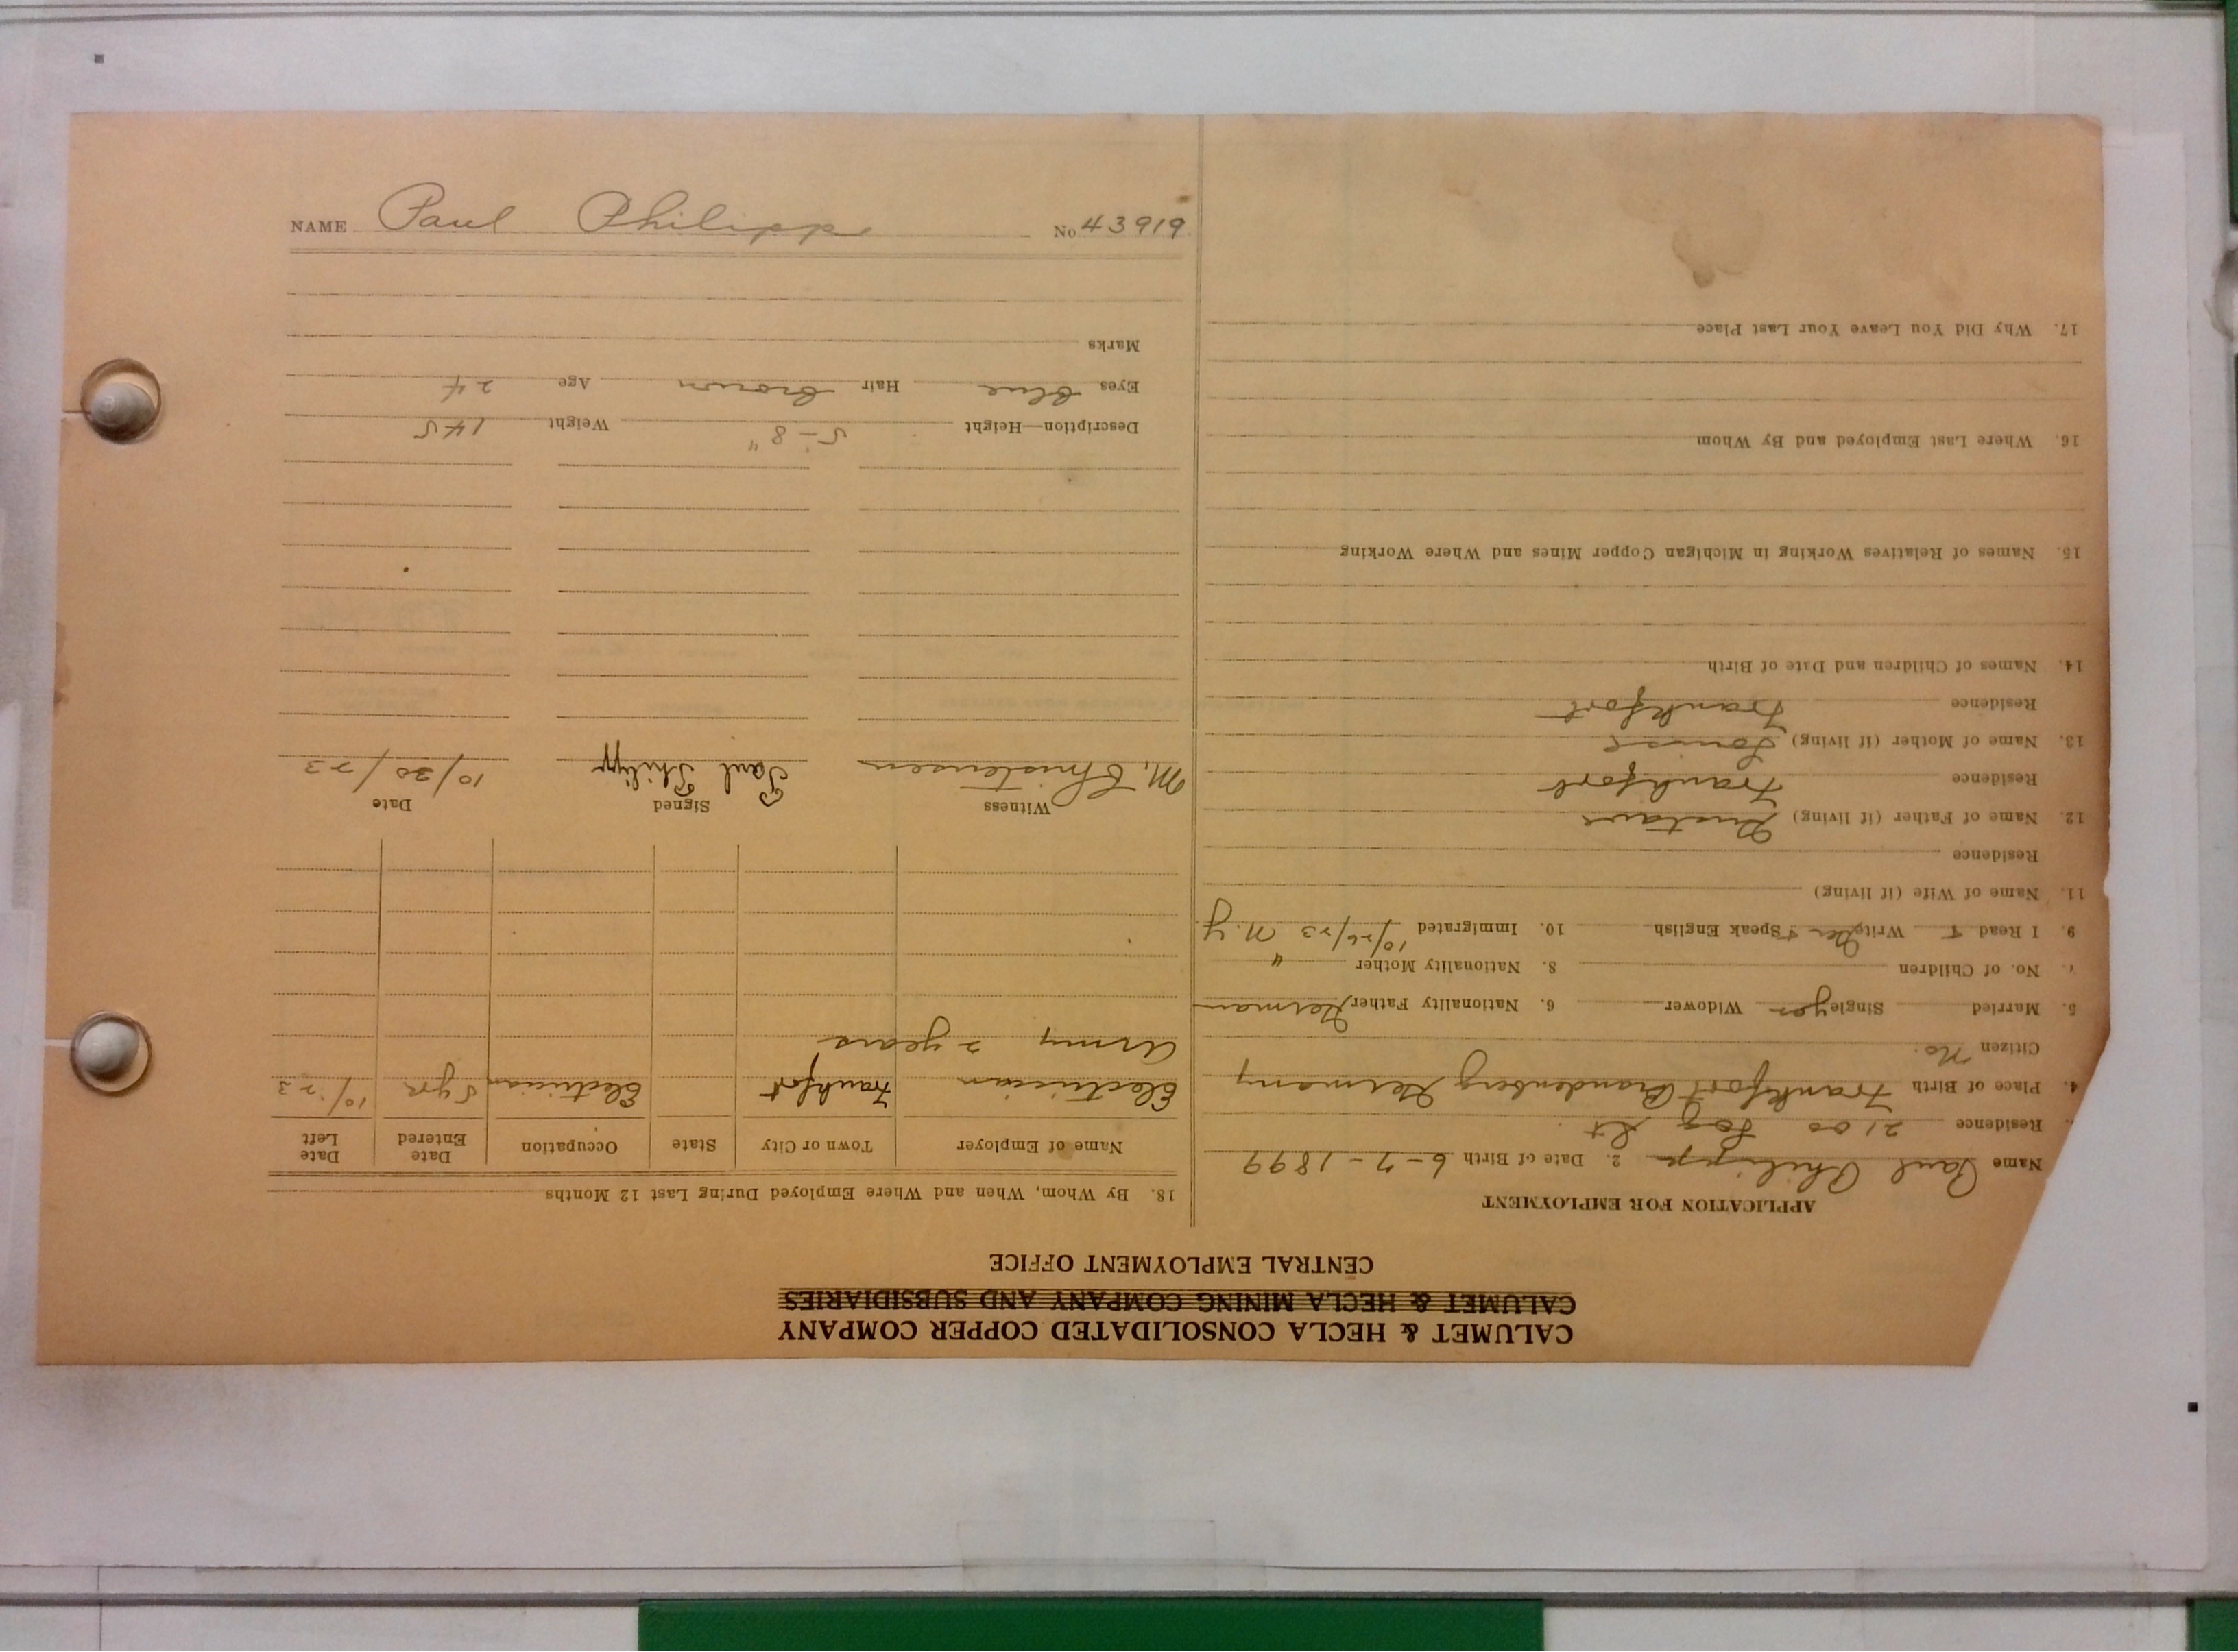 CALUMET & HECLA CONSOLIDATED COPPER COMPANY
CALUMET & HECLA MINING COMPANY AND SUBSIDIARIES
CENTRAL EMPLOYMENT OFFICE
APPLICATION FOR EMPLOYMENT
Name Paul Philipp 2. Date of Birth 6-7-1899
Residence 2100 Log St
4. Place of Birth Frankfort Brandenberg Germany
Citizen No.
5. Married Single yes Widower 6. Nationality Father German
No. of Children 8. Nationality Mother "
9. I Read + Write Ger + Speak English 10. Immigrated 10/26/23 N.Y.
11. Name of Wife (if living)
Residence
12. Name of Father (if living) Gustave
Residence Frankfort
13. Name of Mother (if living) Louise
Residence Frankfort
14. Names of Children and Date of Birth
15. Names of Relatives Working in Michigan Copper Mines and Where Working
16. Where Last Employed and By Whom
17. Why Did You Leave Your Last Place
18. By Whom, When and Where Employed During Last 12 Months
Name of Employer Town or City State Occupation Date Entered Date Left
Electrician Frankfort Electrician 5 yrs 10/23
Army 2 years
Witness Signed Date
M. Christensen Paul Philipp 10/30/23
Description—Height 5-8" Weight 145
Eyes blue Hair brown Age 24
Marks
NAME Paul Philipp No 43919